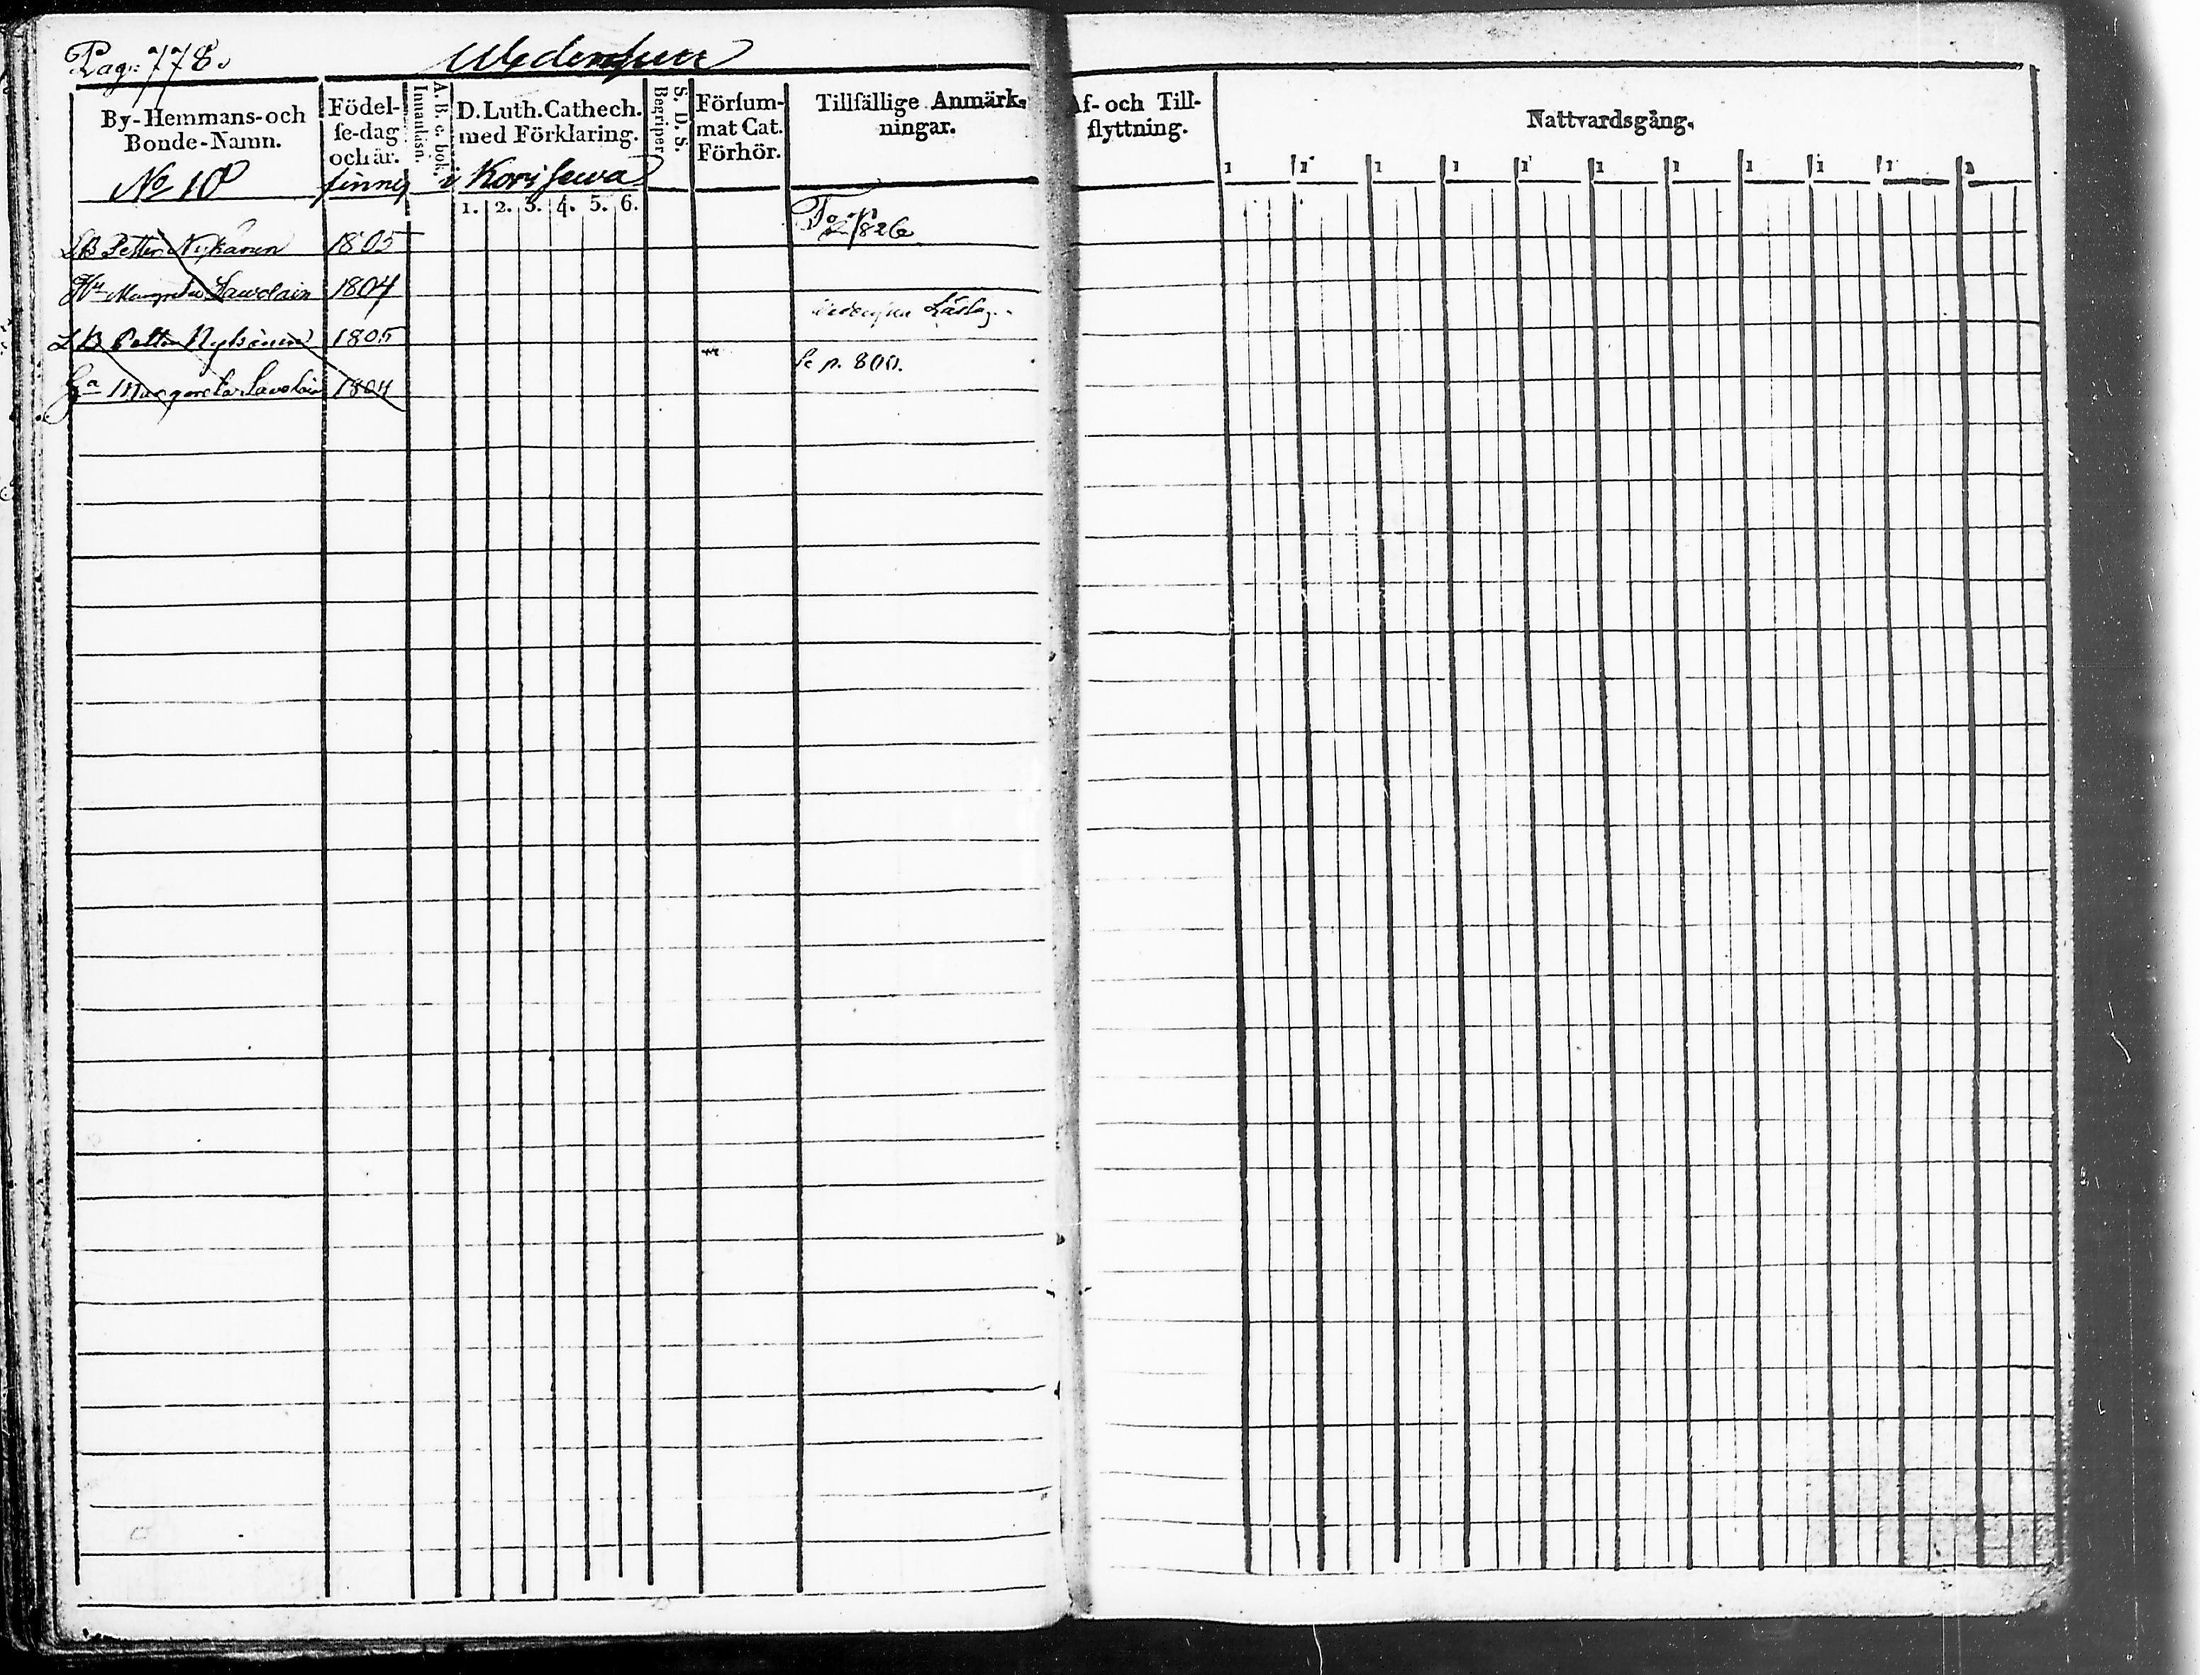 Pag: 778.
By-Hemmans-och Bonde-Namn.
Födel-se-dag och år.
Innanläsn.
A. B. c. bok.
D. Luth. Cathech. med Förklaring.
S. D. S. Begriper
Försum-mat Cat. Förhör.
Tillfällige Anmärk-ningar.
Af- och Till-flyttning.
Nattvardsgång.
No 10 finnes i Korisewa
1. 2. 3. 4. 5. 6.
1 1 1 1 1 1 1 1 1 1 1
LB Petter Nykänen 1805
Hu Margreta Sawolain 1804
LB Petter Nykänen 1805
Ga Margareta Savolain 1804
Se p. 800.